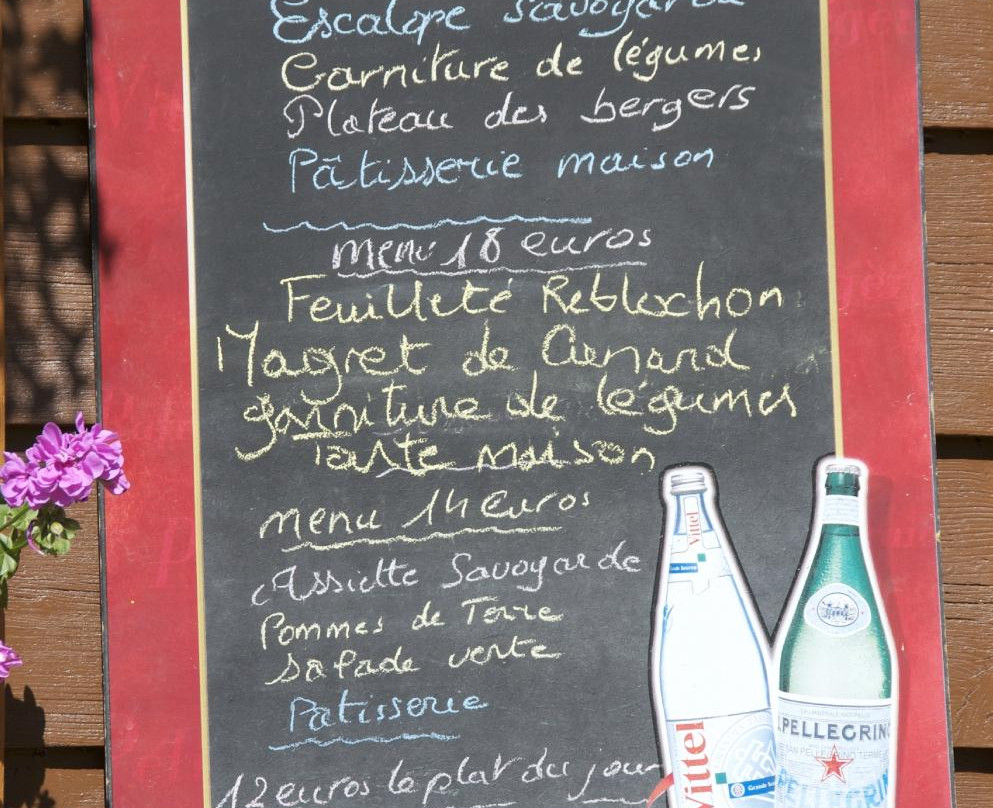 Escalope Savoyarde
Garniture de légumes
Plateau des bergers
Pâtisserie maison
menu 18 euros
Feuilleté Reblochon
Magret de Canard
garniture de légumes
Tarte maison
menu 14 euros
Assiette Savoyarde
Pommes de Terre
salade verte
Patisserie
12 euros le plat du jour
Vittel
Vittel
S.PELLEGRINO
SAN PELLEGRINO TERME